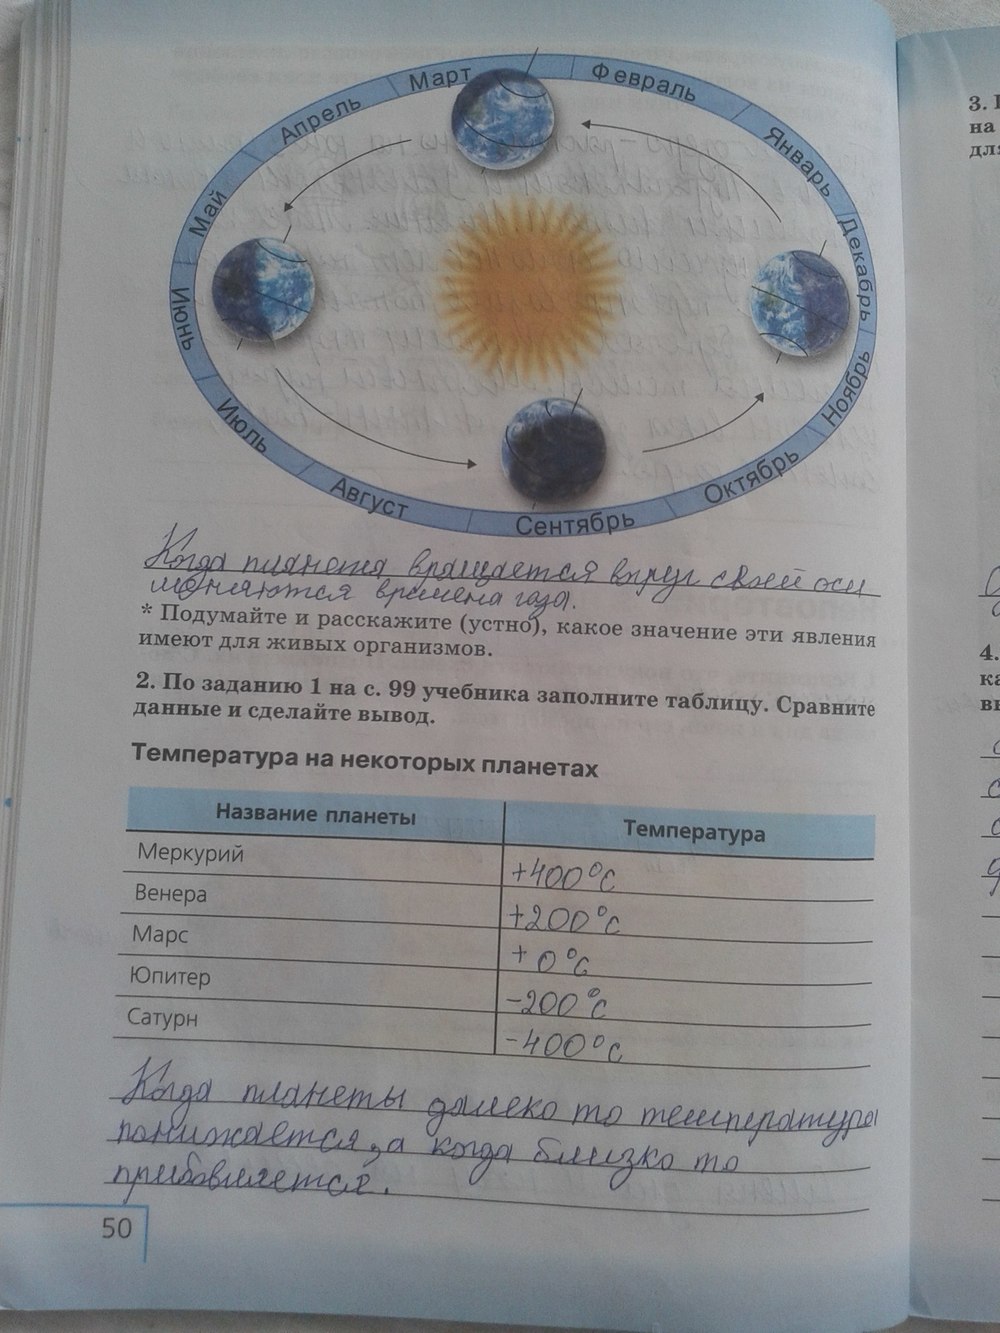 Март
Февраль
Апрель
Январь
Май
Декабрь
Июнь
Ноябрь
Июль
Октябрь
Август
Сентябрь
Когда планета вращается вкруг своей оси
меняются времена года.
* Подумайте и расскажите (устно), какое значение эти явления
имеют для живых организмов.
2. По заданию 1 на с. 99 учебника заполните таблицу. Сравните
данные и сделайте вывод.
Температура на некоторых планетах
Название планеты Температура
Меркурий +400°С
Венера +200°С
Марс + 0°С
Юпитер -200°С
Сатурн -400°С
Когда планеты далеко то температура
понижается, а когда близко то
прибовляется.
50
3.
на
для
4.
ка